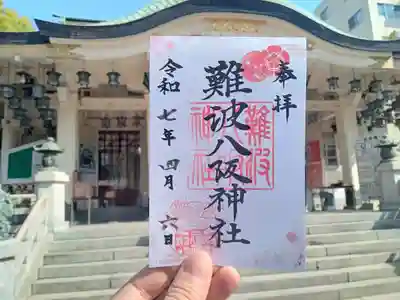 奉拝
難波八阪神社
令和七年四月六日